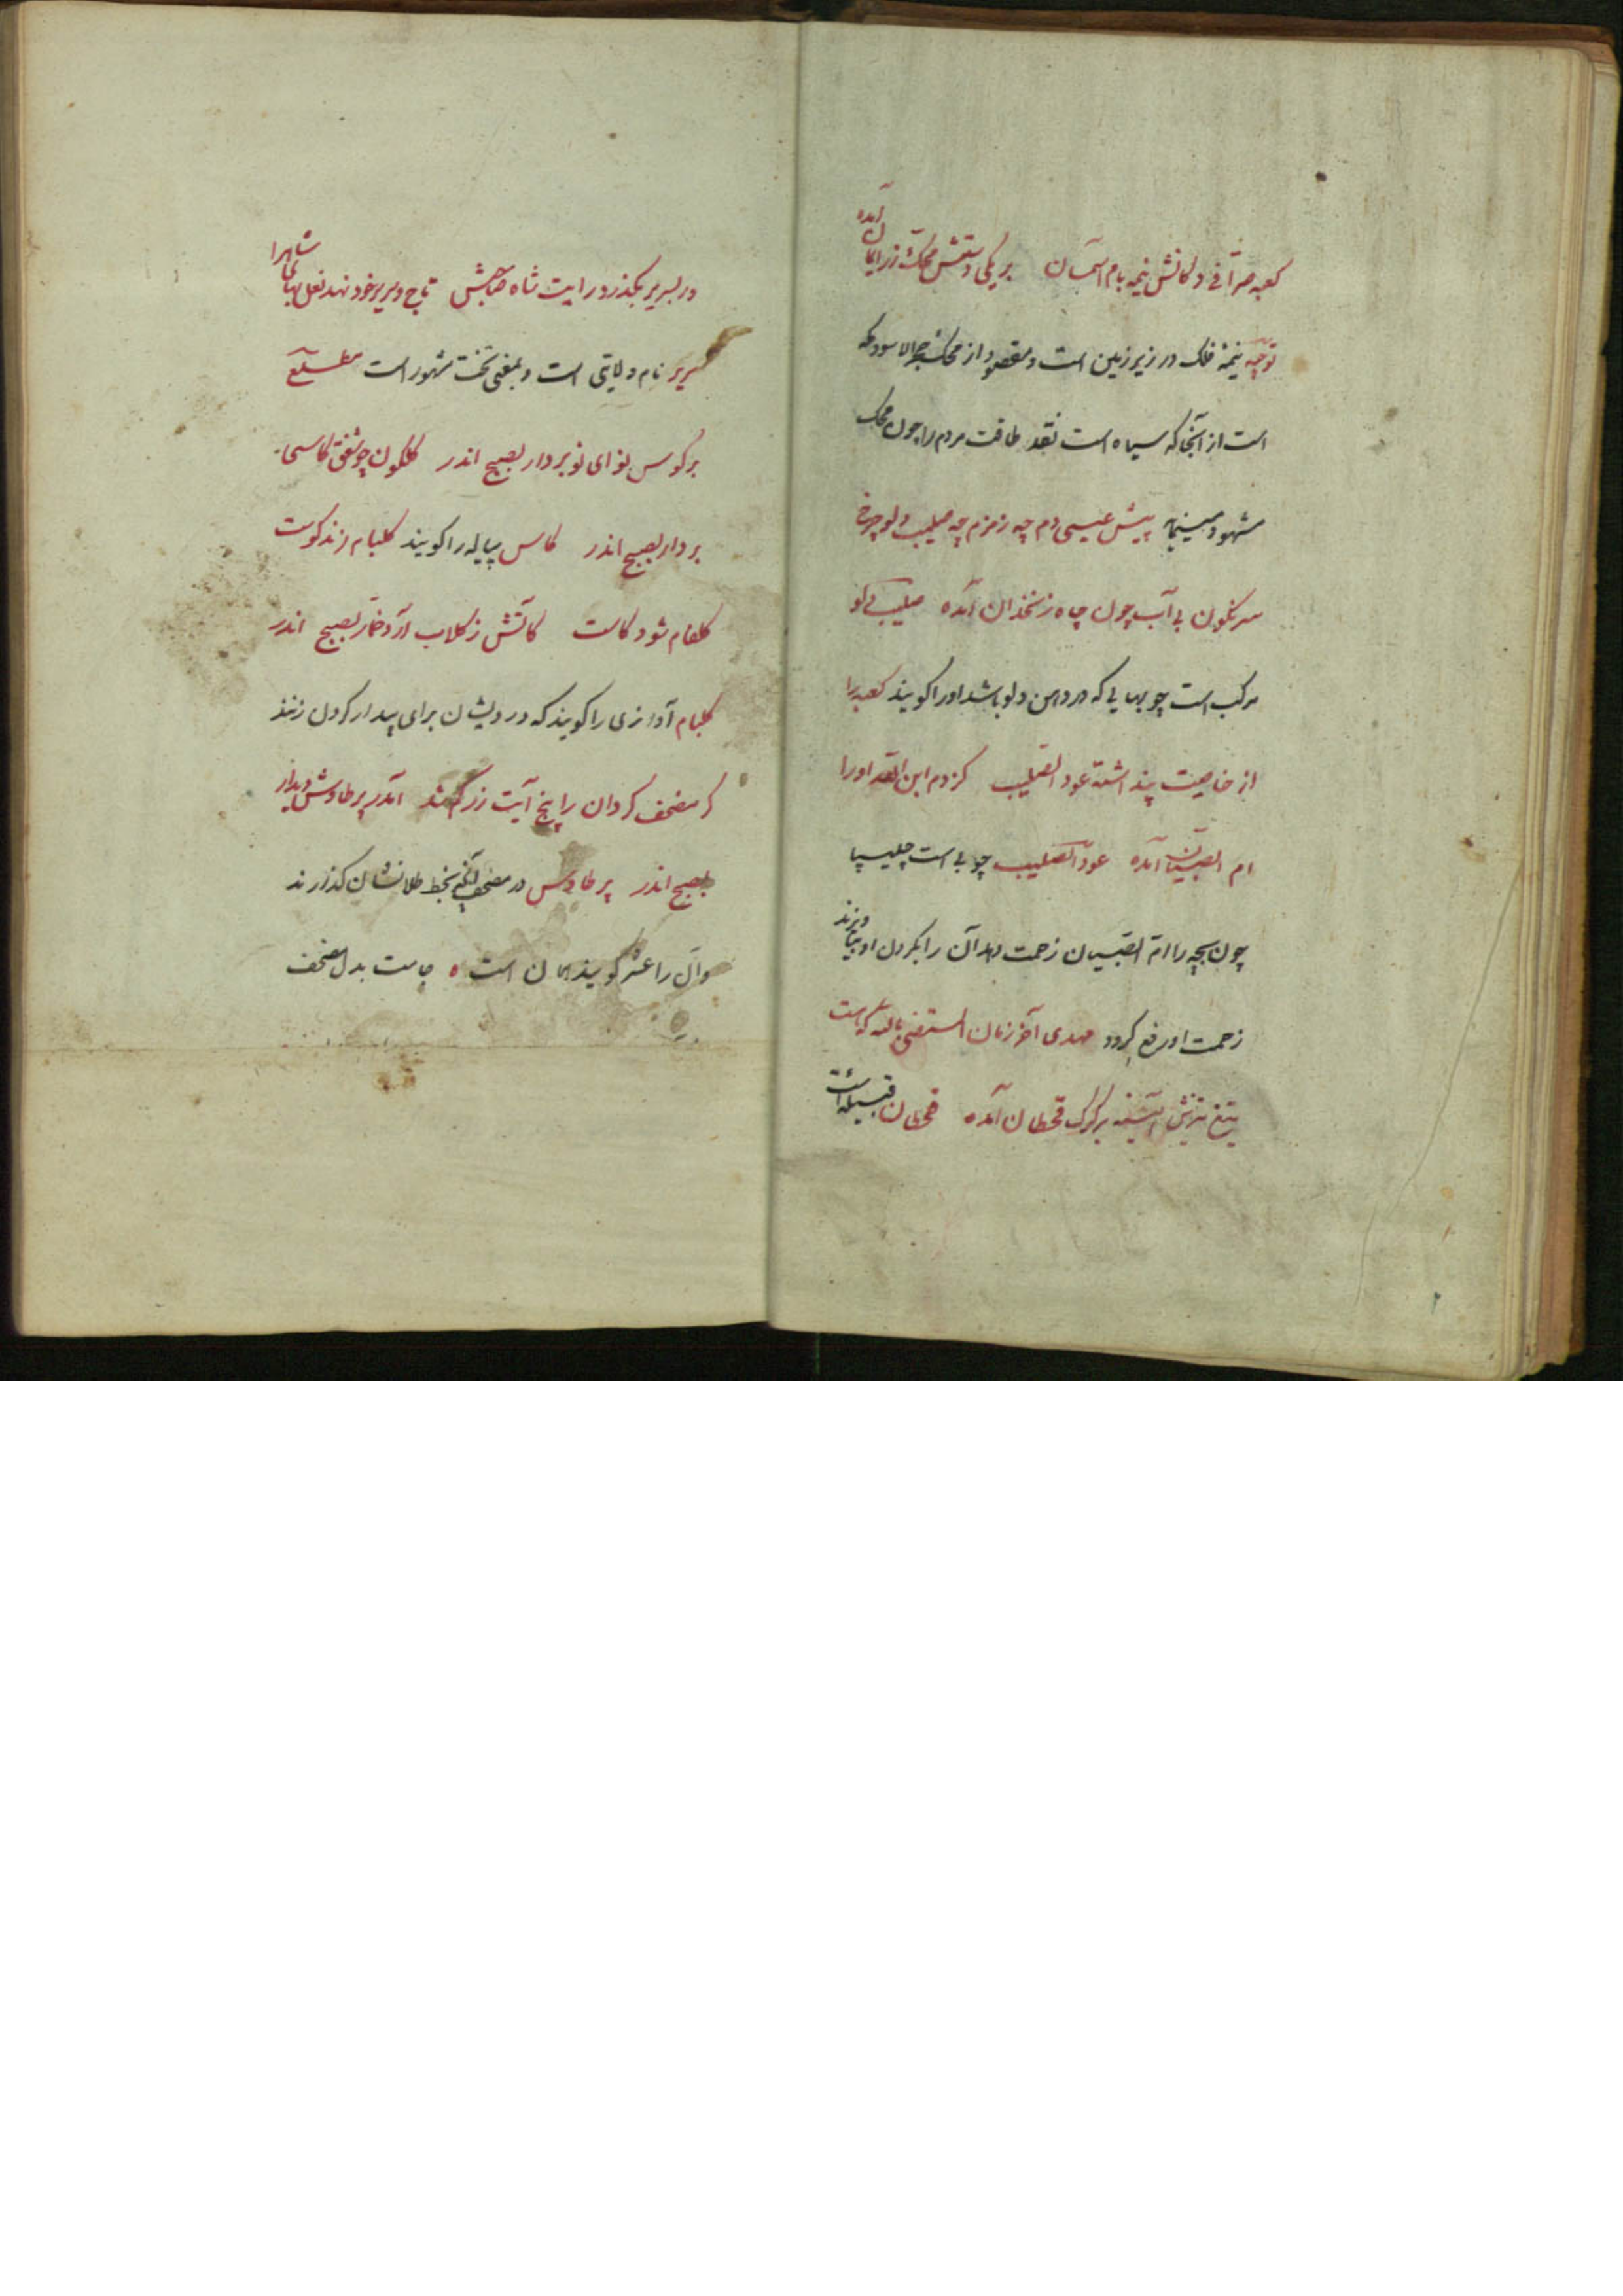 کعبه صرافی دکانش نیمه بام آسمان بر یکی دستش محک زر ایمان آمده
توجیه نیمهٔ فلک در زیر زمین است و مقصود از محک حجرالاسود که
است از آنجا که سیاه است نقد طاقت مردم را چون محک
مشهود مینماید پیش عیسی دم چه زمزم چه صلیب دلو چرخ
سرنگون بی آب چون چاه زنخدان آمده صلیب دلو
مرکب است چوبهایی که در دهن دلو باشد او را گویند کعبه را
از خاصیت پنداشته عود الصلیب کزدم ابن الله او را
ام الصبیان آمده عود الصلیب چوبی است چلیپا
چون بچه را ام الصبیان زحمت دهد آن را بگردن او بیاویزند
زحمت او رفع گردد مهدی آخر زمان المستضی بالله که هست
تیغ تیزش تشنه بر گرگ قحطان آمده قحطان قبیله است
در بسریر بگذرد رایت شاه صاحبش تاج و سریر خود نهد نعل بهای شاه را
سریر نام ولایتی است و بمعنی تخت مشهور است مطلع
بر کوس نوای نو بردار بصبح اندر گلگون چو شفق کاسی
بردار بصبح اندر کاس پیاله را گویند گلبام زند کوست
گلفام شود کاست کاتش ز گلاب آرد خمار بصبح اندر
گلبام آوازی را گویند که درویشان برای بیدار کردن زنند
گر مصحف گردان را پنج آیت زر آمد پر طاوس دیدار
بصبح اندر پر طاوس در مصحف بخط طلا نشان گذارند
و آن را عشر گویند همان است جامت بدل مصحف